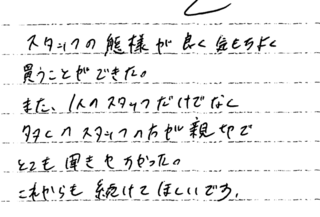 スタッフの態様が良く気もちよく
買うことができた。
また、1人のスタッフだけでなく
多くのスタッフの方が親切で
とても聞きやすかった。
これからも続けてほしいです。